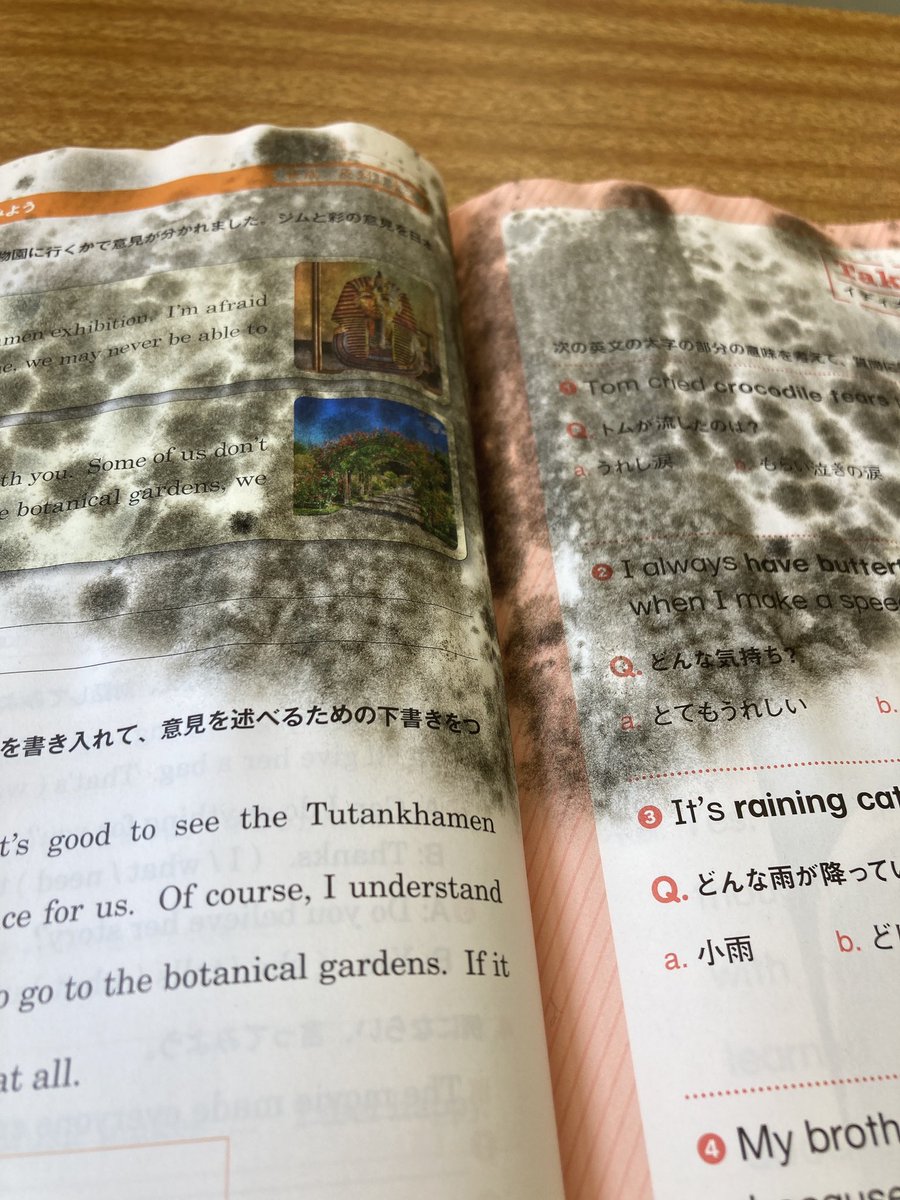 みよう
物園に行くかで意見が分かれました。ジムと彩の意見を日本
amen exhibition. I'm afraid
we may never be able to
th you. Some of us don't
botanical gardens, we
を書き入れて、意見を述べるための下書きをつ
t's good to see the Tutankhamen
ce for us. Of course, I understand
o go to the botanical gardens. If it
at all.
Tak
次の英文の太字の部分の意味を考えて、質問に
1 Tom cried crocodile tears
Q. トムが流したのは?
a. うれし涙 b. もらい泣きの涙
2 I always have butterf
when I make a spee
Q. どんな気持ち?
a. とてもうれしい b.
3 It's raining cat
Q. どんな雨が降ってい
a. 小雨 b. ど
4 My broth
because